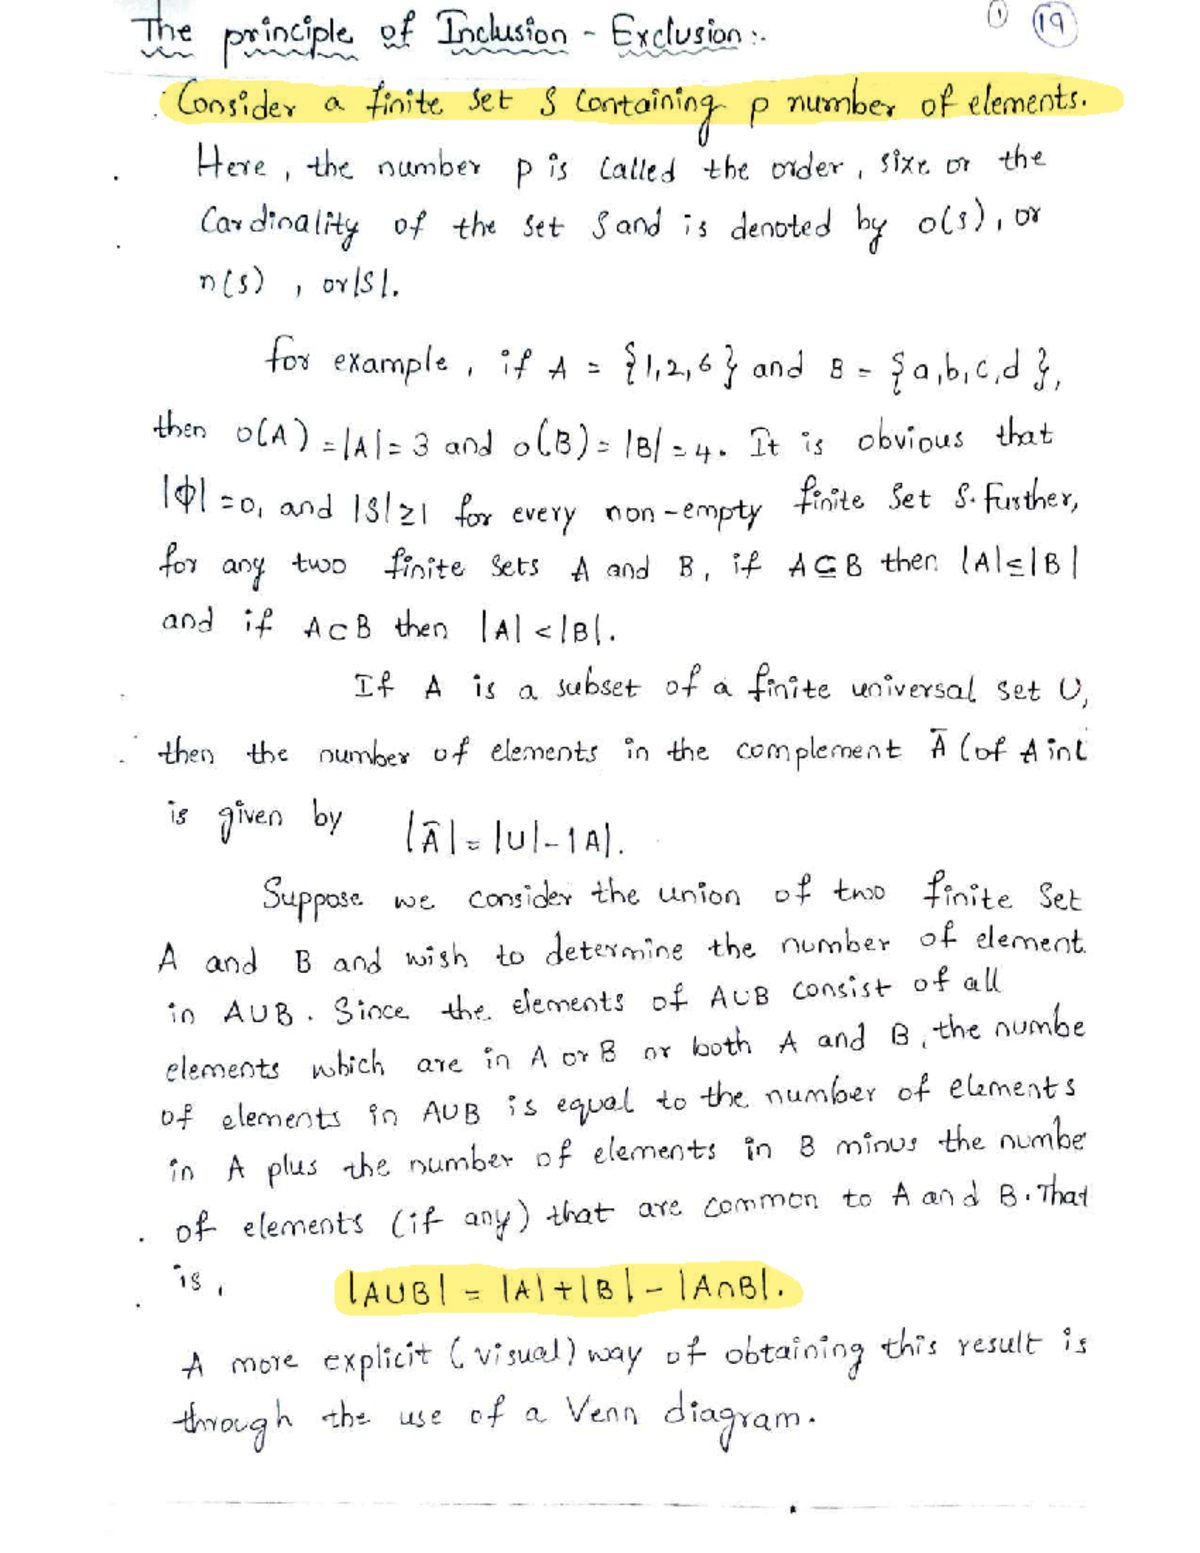 The principle of Inclusion - Exclusion :-
1 19
Consider a finite set S Containing p number of elements.
Here, the number p is Called the order, size or the
Cardinality of the set S and is denoted by o(s), or
n(s), or |S|.
for example, if A = {1,2,6} and B = {a,b,c,d},
then o(A) = |A| = 3 and o(B) = |B| = 4. It is obvious that
|ϕ| = 0, and |S| ≥ 1 for every non-empty finite Set S. Further,
for any two finite sets A and B, if A ⊆ B then |A| ≤ |B|
and if A ⊂ B then |A| < |B|.
If A is a subset of a finite universal set U,
then the number of elements in the complement Ā (of A in
is given by |Ā| = |U| - |A|.
Suppose we consider the union of two finite Set
A and B and wish to determine the number of element
in A∪B. Since the elements of A∪B consist of all
elements which are in A or B or both A and B, the numbe
of elements in A∪B is equal to the number of elements
in A plus the number of elements in B minus the numbe
of elements (if any) that are common to A and B. That
is, |A∪B| = |A| + |B| - |A∩B|.
A more explicit (visual) way of obtaining this result is
through the use of a Venn diagram.